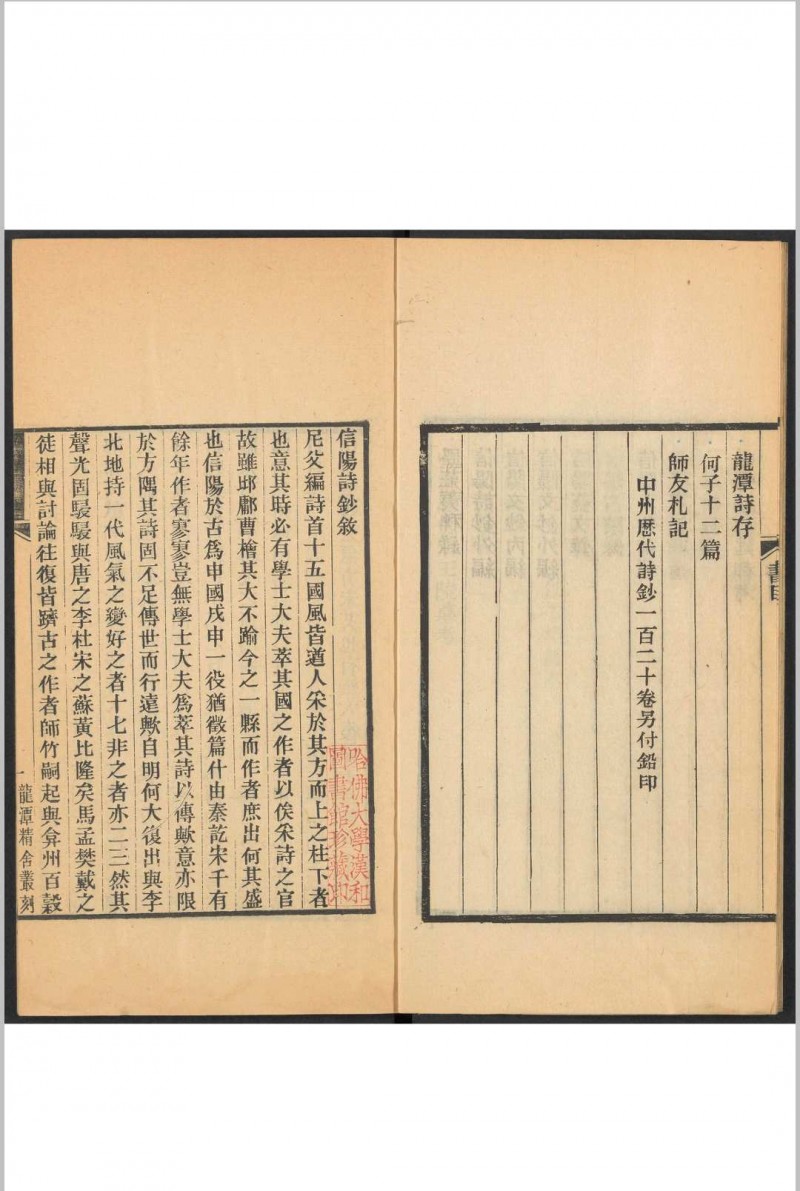 龍潭詩存
何子十二篇
師友札記
中州歷代詩鈔一百二十卷另付鉛印
書目
信陽詩鈔敘
尼父編詩首十五國風皆遒人采於其方而上之柱下者
也意其時必有學士大夫萃其國之作者以俟采詩之官
故雖邶鄘曹檜其大不踰今之一縣而作者庶出何其盛
也信陽於古爲申國戍申一役猶徵篇什由秦訖宋千有
餘年作者寥寥豈無學士大夫爲萃其詩以傳歟意亦限
於方隅其詩固不足傳世而行遠歟自明何大復出與李
北地持一代風氣之變好之者十七非之者亦二三然其
聲光固駸駸與唐之李杜宋之蘇黃比隆矣馬孟樊戴之
徒相與討論往復皆躋古之作者師竹嗣起與弇州百穀
一
龍潭精舍叢刻
哈佛大學漢和
圖書館珍藏印